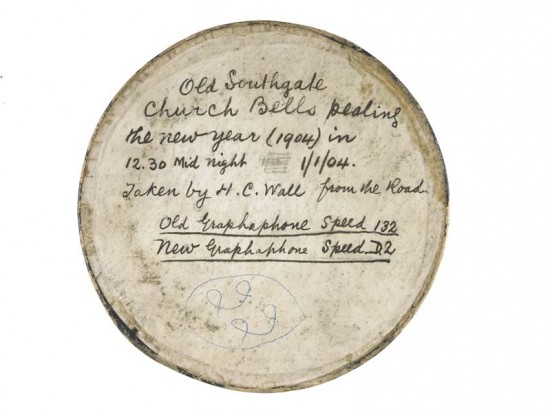 Old Southgate
Church Bells pealing
the new year (1904) in
12.30 Mid night 1/1/04.
Taken by H. C. Wall from the Road.
Old Graphaphone Speed 132
New Graphaphone Speed D.2